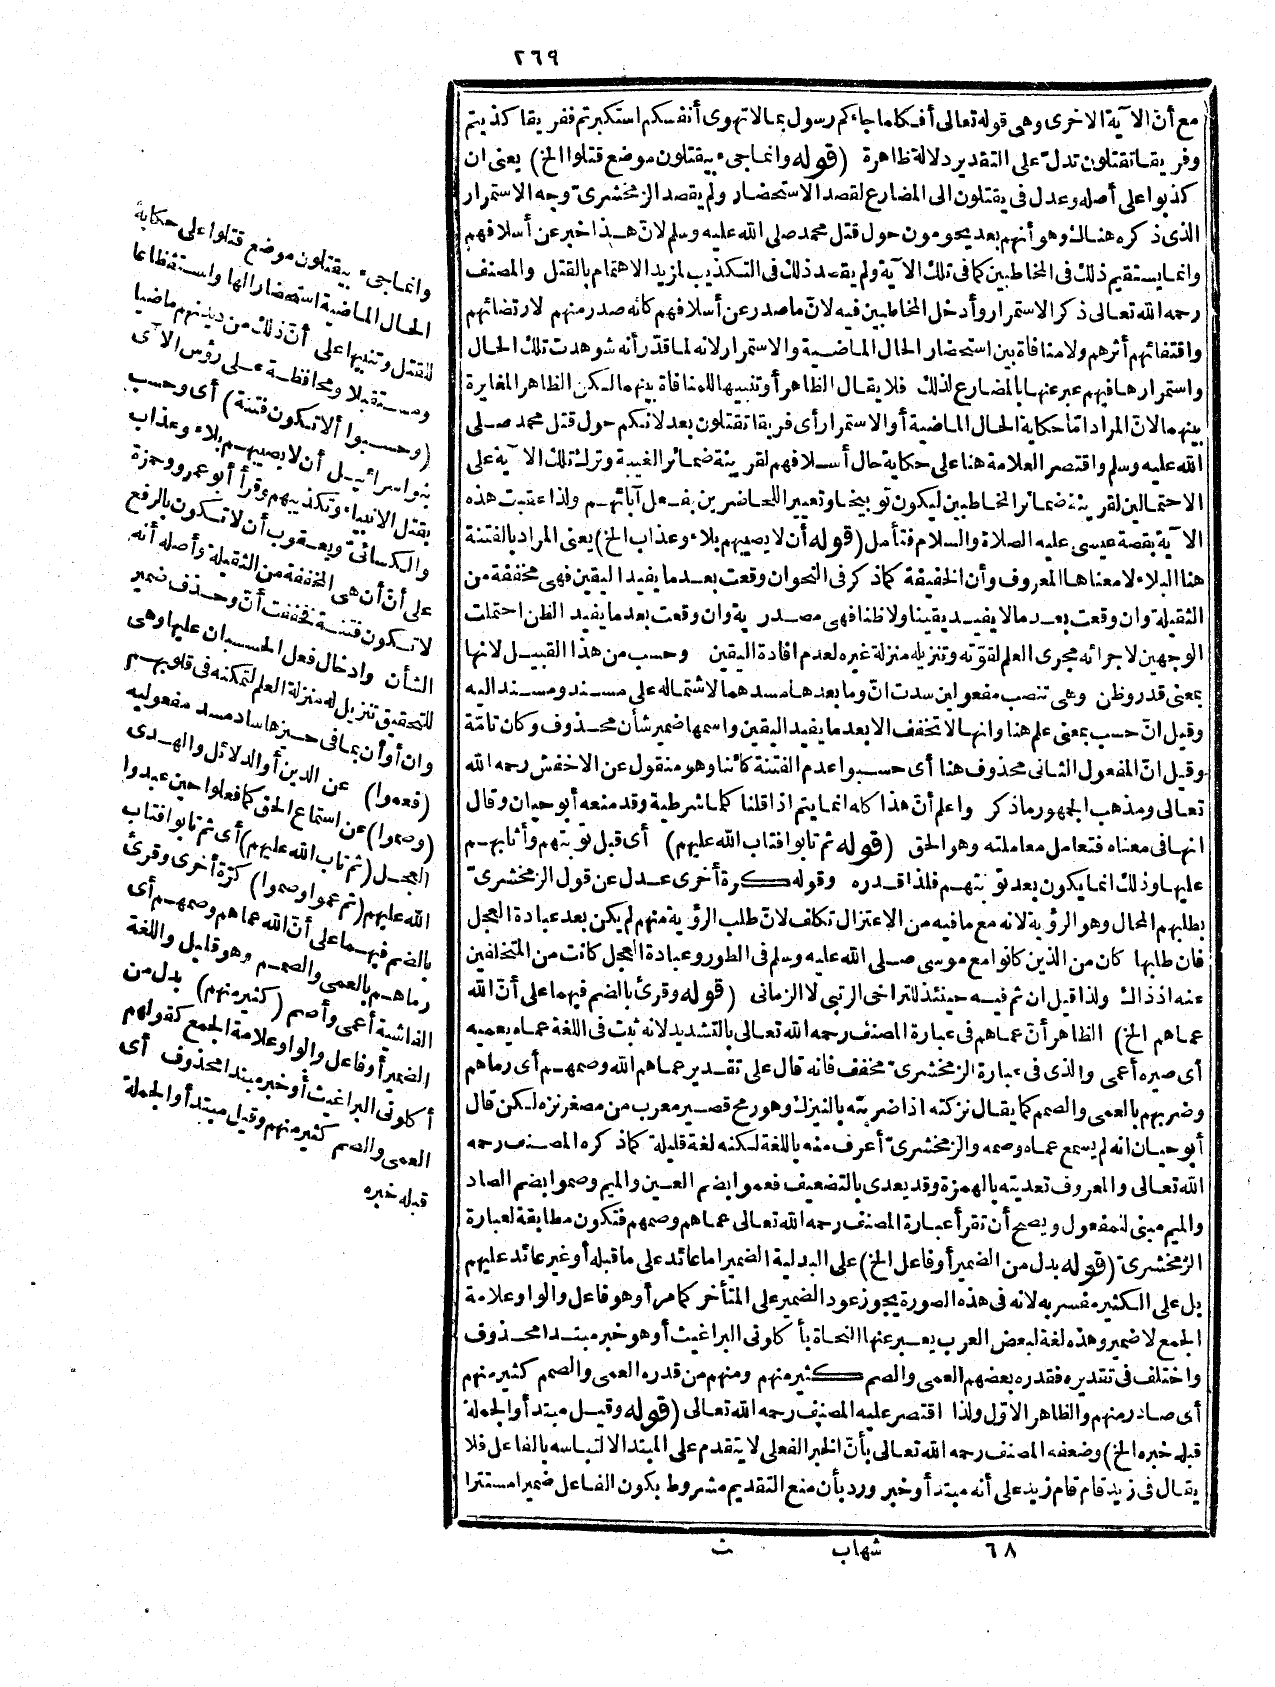 ٢٦٩
مع أنّ الآية الاخرى وهى قوله تعالى أفكلما جاءكم رسول بما لا تهوى أنفسكم استكبرتم ففريقا كذبتم
وفريقا تقتلون تدلّ على التقدير دلالة ظاهرة (قوله وانما جىء بيقتلون موضع قتلوا الخ) يعنى ان
كذبوا على أصله وعدل فى يقتلون الى المضارع لقصد الاستحضار ولم يقصد الزمخشرىّ وجه الاستمرار
الذى ذكره هناك وهو أنهم بعد يحومون حول قتل محمد صلى الله عليه وسلم لانّ هذا خبر عن أسلافهم
وانما يستقيم ذلك فى المخاطبين كما فى تلك الآية ولم يقصد ذلك فى التكذيب لمزيد الاهتمام بالقتل والمصنف
رحمه الله تعالى ذكر الاستمرار وأدخل المخاطبين فيه لانّ ما صدر عن أسلافهم كانه صدر منهم لارتضائهم
واقتفائهم أثرهم ولا منافاة بين استحضار الحال الماضية والاستمرار لانه لما قدّر أنه شوهدت تلك الحال
واستمرارها فيهم عبر عنها بالمضارع لذلك فلا يقال الظاهر أو تنبيها للمنافاة بينهما لكن الظاهر المغايرة
بينهما لانّ المراد امّا حكاية الحال الماضية أو الاستمرار أى فريقا تقتلون بعد لانكم حول قتل محمد صلى
الله عليه وسلم واقتصر العلامة هنا على حكاية حال أسلافهم لقرينة ضمائر الغيبة وترك تلك الآية على
الاحتمالين لقرينة ضمائر المخاطبين ليكون توبيخا وتعييرا للحاضرين بفعل آبائهم ولذا عقبت هذه
الآية بقصة عيسى عليه الصلاة والسلام فتأمل (قوله أن لا يصيبهم بلاء وعذاب الخ) يعنى المراد بالفتنة
هنا البلاء لا معناها المعروف وأن الخفيفة كما ذكر فى النحو ان وقعت بعد ما يفيد اليقين فهى مخففة من
الثقيلة وان وقعت بعد ما لا يفيد يقينا ولا ظنا فهى مصدرية وان وقعت بعد ما يفيد الظن احتملت
الوجهين لاجرائه مجرى العلم لقوّته وتنزيله منزلة غيره لعدم افادة اليقين وحسب من هذا القبيل لانها
بمعنى قدر وظن وهى تنصب مفعولين سدت انّ وما بعدها مسدهما لاشتماله على مسند ومسند اليه
وقيل انّ حسب بمعنى علم هنا وانها لا تخفف الا بعد ما يفيد اليقين واسمها ضمير شأن محذوف وكان تامّة
وقيل انّ المفعول الثانى محذوف هنا أى حسبوا عدم الفتنة كائنا وهو منقول عن الاخفش رحمه الله
تعالى ومذهب الجمهور ما ذكر واعلم أنّ هذا كله انما يتم اذا قلنا كلما شرطية وقد منعه أبو حيان وقال
انها فى معناه فتعامل معاملته وهو الحق (قوله ثم تابوا فتاب الله عليهم) أى قبل توبتهم وأثابهم
عليها وذلك انما يكون بعد توبتهم فلذا قدره وقوله كرة أخرى عدل عن قول الزمخشرىّ
بطلبهم المحال وهو الرؤية لانه مع ما فيه من الاعتزال تكلف لانّ طلب الرؤية منهم لم يكن بعد عبادة العجل
فان طلبها كان من الذين كانوا مع موسى صلى الله عليه وسلم فى الطور وعبادة العجل كانت من المتخلفين
عنه اذ ذاك ولذا قيل ان ثم فيه حينئذ للتراخى الرتبى لا الزمانى (قوله وقرئ بالضم فيهما على أنّ الله
عماهم الخ) الظاهر أنّ عماهم فى عبارة المصنف رحمه الله تعالى بالتشديد لانه ثبت فى اللغة عماه يعميه
أى صيره أعمى والذى فى عبارة الزمخشرىّ مخفف فانه قال على تقدير عماهم الله وصمهم أى رماهم
وضربهم بالعمى والصمم كما يقال نزكته اذا ضربته بالنيزك وهو رمح قصير معرب من مصغر نزه لكن قال
أبو حيان انه لم يسمع عماه وصمه والزمخشرىّ أعرف منه باللغة لكنه لغة قليلة كما ذكره المصنف رحمه
الله تعالى والمعروف تعديته بالهمزة وقد يعدى بالتضعيف فعموا بضم العين والميم وصموا بضم الصاد
والميم مبنى للمفعول ويصح أن تقرأ عبارة المصنف رحمه الله تعالى عماهم وصمهم فتكون مطابقة لعبارة
الزمخشرىّ (قوله بدل من الضمير أو فاعل الخ) على البدلية الضمير اما عائد على ما قبله أو غير عائد عليهم
بل على الكثير مفسر به لانه فى هذه الصورة يجوز عود الضمير على المتأخر كما مر أو هو فاعل والواو علامة
الجمع لا ضمير وهذه لغة لبعض العرب يعبر عنها النحاة بأكلونى البراغيث أو هو خبر مبتدا محذوف
واختلف فى تقديره فقدره بعضهم العمى والصم كثير منهم ومنهم من قدره العمى والصمم كثير منهم
أى صادر منهم والظاهر الاوّل ولذا اقتصر عليه المصنف رحمه الله تعالى (قوله وقيل مبتدأ والجملة
قبله خبره الخ) وضعفه المصنف رحمه الله تعالى بأنّ الخبر الفعلى لا يتقدم على المبتدا لالتباسه بالفاعل فلا
يقال فى زيد قام قام زيد على أنه مبتدأ وخبر ورد بأن منع التقديم مشروط بكون الفاعل ضميرا مستترا
وانما جىء بيقتلون موضع قتلوا على حكاية
الحال الماضية استحضارا لها واستفظاعا
للقتل وتنبيها على أنّ ذلك من دينهم ماضيا
ومستقبلا ومحافظة على رؤس الآى
(وحسبوا ألا تكون فتنة) أى وحسب
بنو اسرائيل أن لا يصيبهم بلاء وعذاب
بقتل الانبياء وتكذيبهم وقرأ أبو عمرو وحمزة
والكسائىّ ويعقوب أن لا تكون بالرفع
على أنّ أن هى المخففة من الثقيلة وأصله أنه
لا تكون فتنة فخففت أنّ وحذف ضمير
الشأن وادخال فعل الحسبان عليها وهى
للتحقيق تنزيل له منزلة العلم لتمكنه فى قلوبهم
وان أو أن بما فى حيزها ساد مسد مفعوليه
(فعموا) عن الدين أو الدلائل والهدى
(وصموا) عن استماع الحق كما فعلوا حين عبدوا
العجل (ثم تاب الله عليهم) أى ثم تابوا فتاب
الله عليهم (ثم عموا وصموا) كرّة أخرى وقرئ
بالضم فيهما على أنّ الله عماهم وصمهم أى
رماهم بالعمى والصمم وهو قليل واللغة
الفاشية أعمى وأصم (كثير منهم) بدل من
الضمير أو فاعل والواو علامة الجمع كقولهم
أكلونى البراغيث أو خبر مبتدا محذوف أى
العمى والصم كثير منهم وقيل مبتدأ والجملة
قبله خبره
٦٨ شهاب ث